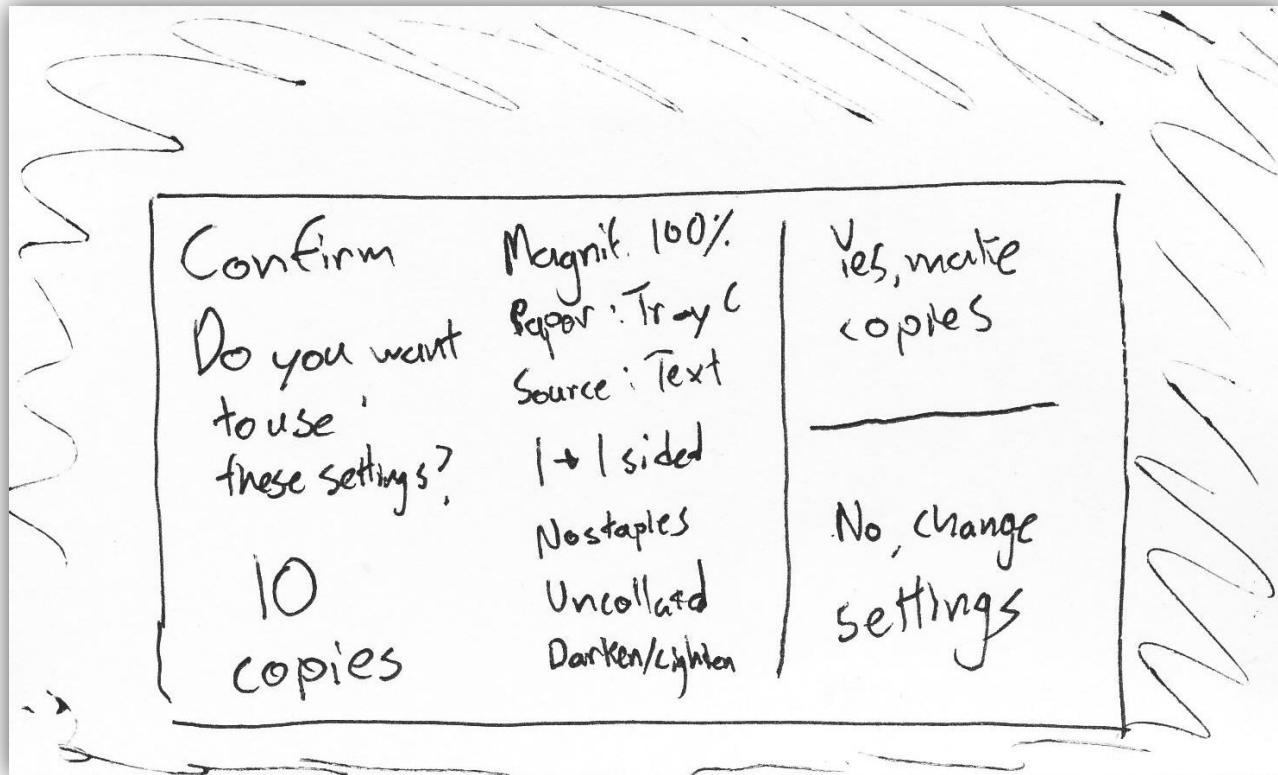 Confirm
Do you want
to use
these settings?
10
copies
Magnif. 100%
Paper: Tray C
Source: Text
1→1 sided
No staples
Uncollated
Darken/Lighten
Yes, make
copies
No, change
settings